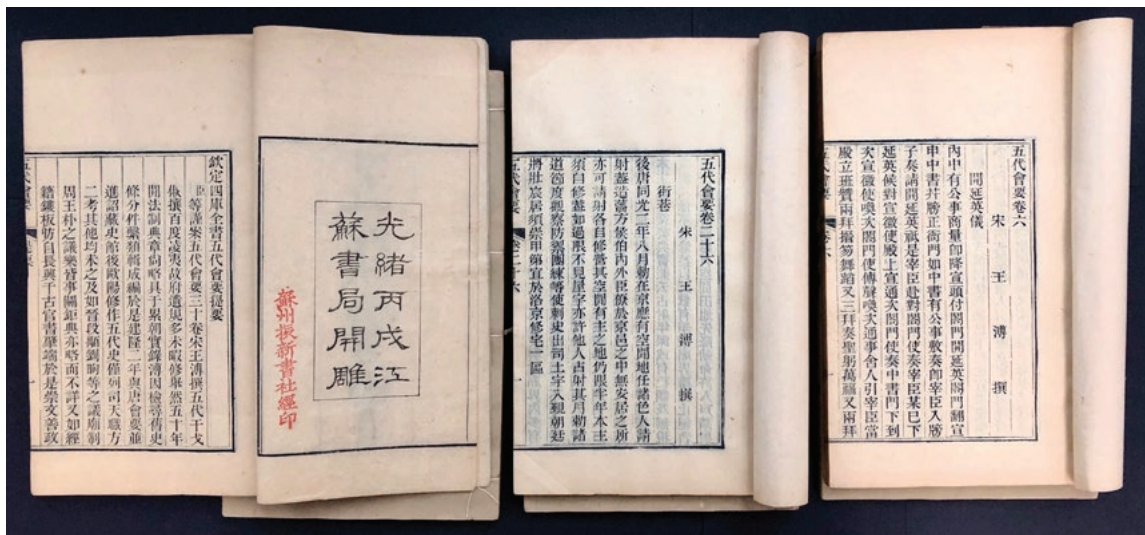 光緒丙戌江
蘇書局開雕
蘇州振新書社經印
欽定四庫全書五代會要提要
臣等謹案五代會要三十卷宋王溥撰五代干戈
俶擾百度淩夷故府遺規多未暇修舉然五十年
閒法制典章尚略具于累朝實錄溥因檢尋舊史
條分件繫類輯成編於是建隆二年與唐會要並
進詔藏史館後歐陽修作五代史僅列司天職方
二考其他均未之及如晉段顒劉昫等之議廟制
周王朴之議樂皆事關鉅典亦略而不詳又如經
籍鏤板昉自長興千古官書肇端於是崇文善政
五代會要卷二十六
宋 王 溥 撰
街巷
後唐同光二年八月勅在京應有空閒地任諸色人請
射蓋造藩方侯伯內外臣僚於京邑之中無安居之所
亦可請射各自修營其空閒有主之地仍限半年本主
須自修蓋如過限不見屋宇亦許他人占射其月勅諸
道節度觀察防禦團練等使刺史出司土宇入覲朝廷
將壯宸居須崇甲第宜於洛京修宅一區
五代會要卷六
宋 王 溥 撰
開延英儀
內中有公事商量卽降宣頭付閤門開延英閤門翻宣
申中書幷牓正衙門如中書有公事敷奏卽宰臣入牓
子奏請開延英祗是宰臣赴對閤門使奏宰臣某已下
延英候對宣徽使殿上宣通次閤門使奏中書門下到
次宣徽使喚次閤門使傳聲喚次通事舍人引宰臣當
殿立班贊兩拜搢笏舞蹈又三拜奏聖躬萬福又兩拜